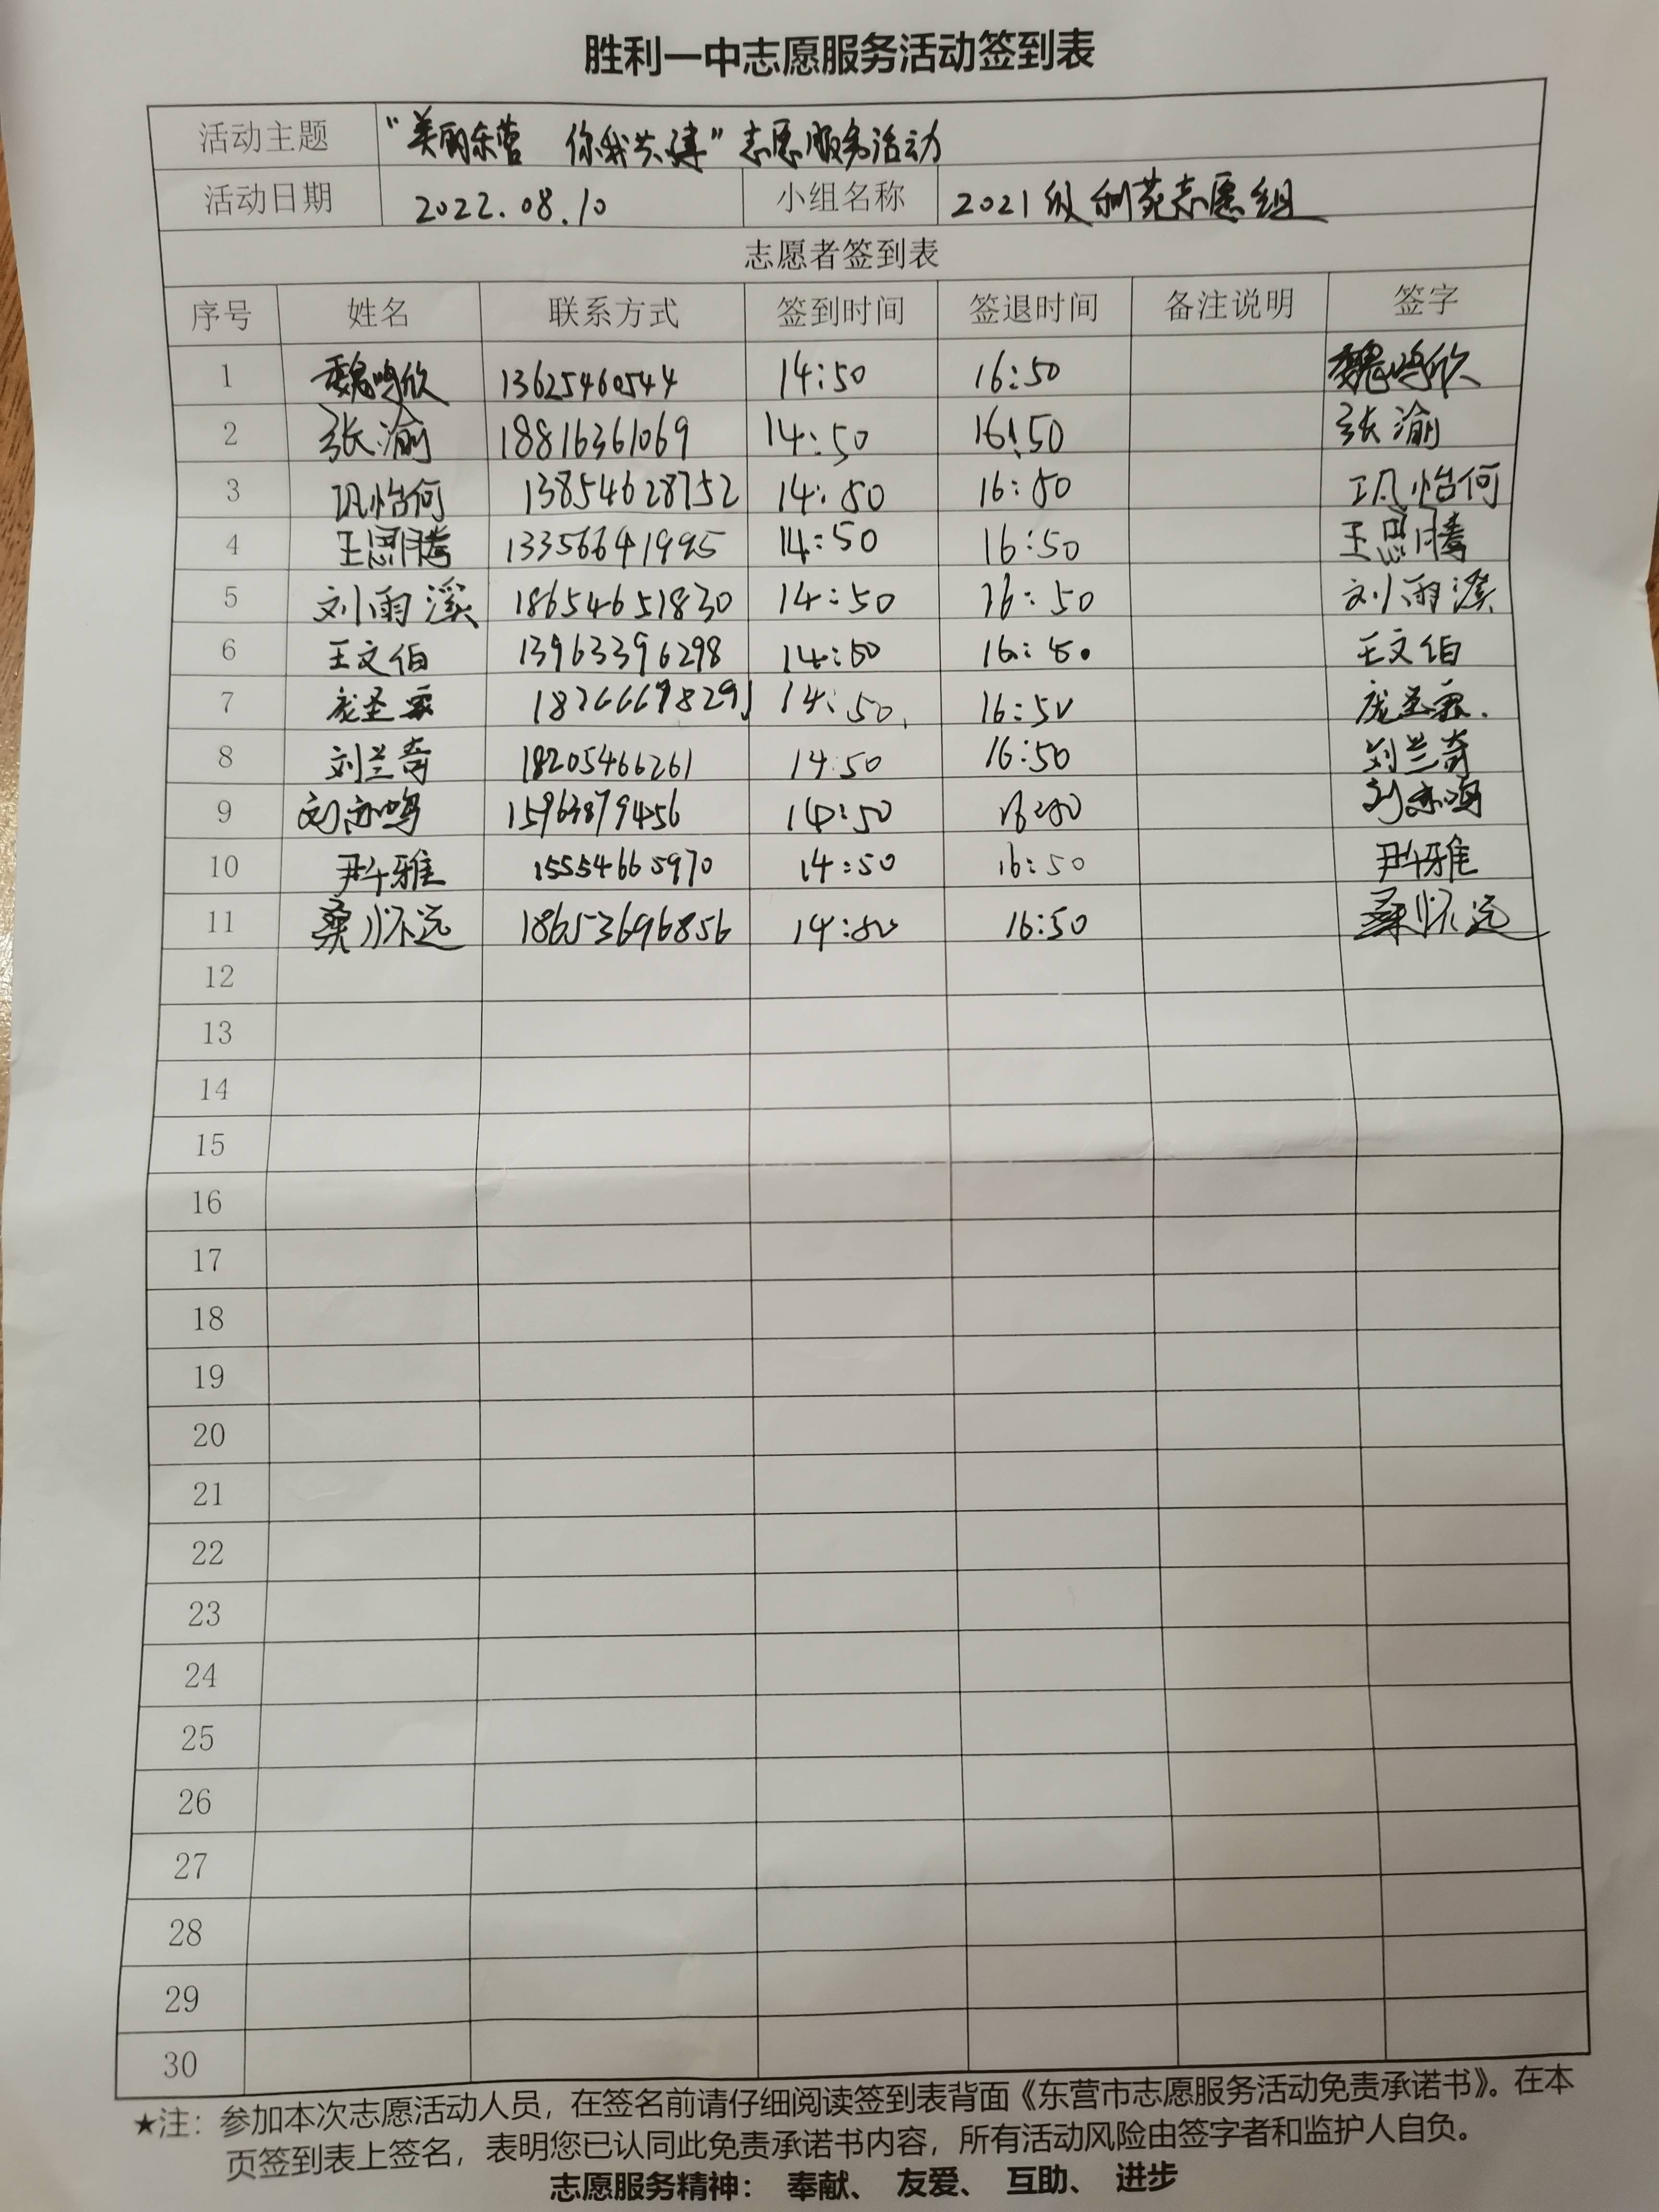 胜利一中志愿服务活动签到表
活动主题 "美丽东营 你我共建"志愿服务活动
活动日期 2022.08.10 小组名称 2021级利苑志愿组
志愿者签到表
序号 姓名 联系方式 签到时间 签退时间 备注说明 签字
1 魏鸣欣 13625460544 14:50 16:50 魏鸣欣
2 张渝 18816361069 14:50 16:50 张渝
3 巩怡何 13854628752 14:50 16:50 巩怡何
4 王思腾 13356641995 14:50 16:50 王思腾
5 刘雨溪 18654651830 14:50 16:50 刘雨溪
6 王文伯 13963396298 14:50 16:50 王文伯
7 庞圣 14:50 16:50 庞圣
8 刘兰奇 18205466261 14:50 16:50 刘兰奇
9 刘亦鸣 15963879456 14:50 刘亦鸣
10 尹午雅 15554665970 14:50 16:50 尹午雅
11 桑怀远 18653696856 14:50 16:50 桑怀远
12
13
14
15
16
17
18
19
20
21
22
23
24
25
26
27
28
29
30
★注：参加本次志愿活动人员，在签名前请仔细阅读签到表背面《东营市志愿服务活动免责承诺书》。在本
页签到表上签名，表明您已认同此免责承诺书内容，所有活动风险由签字者和监护人自负。
志愿服务精神： 奉献、 友爱、 互助、 进步